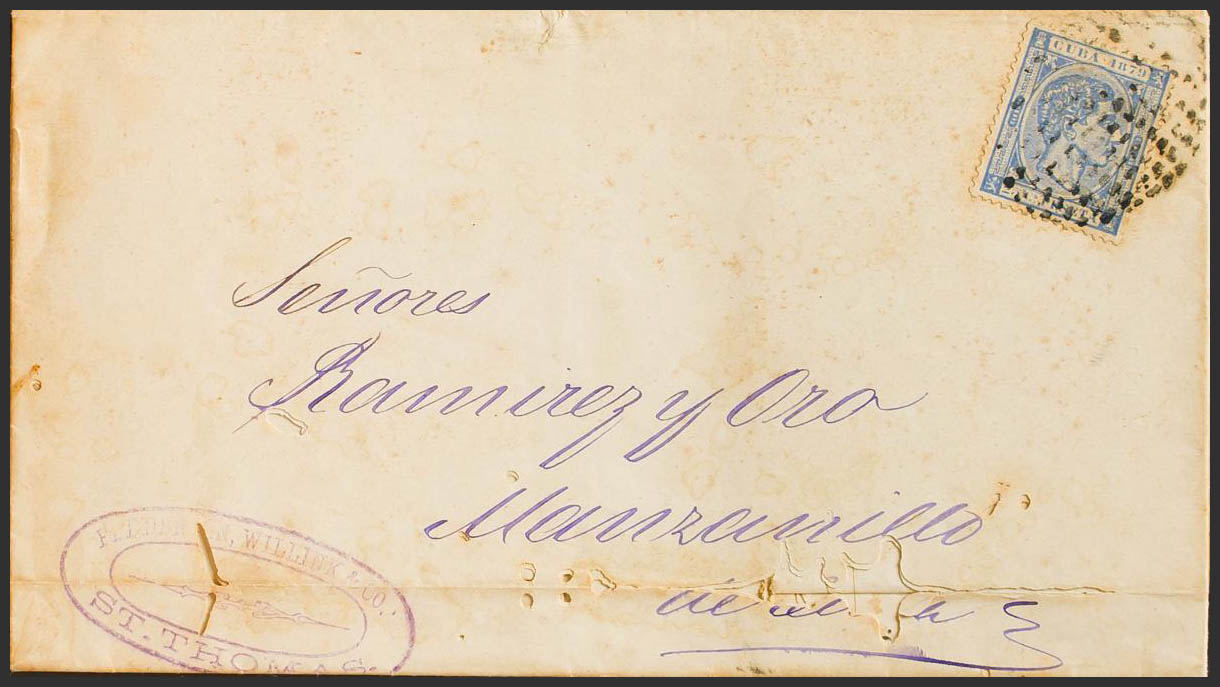 CUBA 1879
Señores
Ramirez y Oro
Manzanillo
de
WILLINK & CO.
ST. THOMAS.